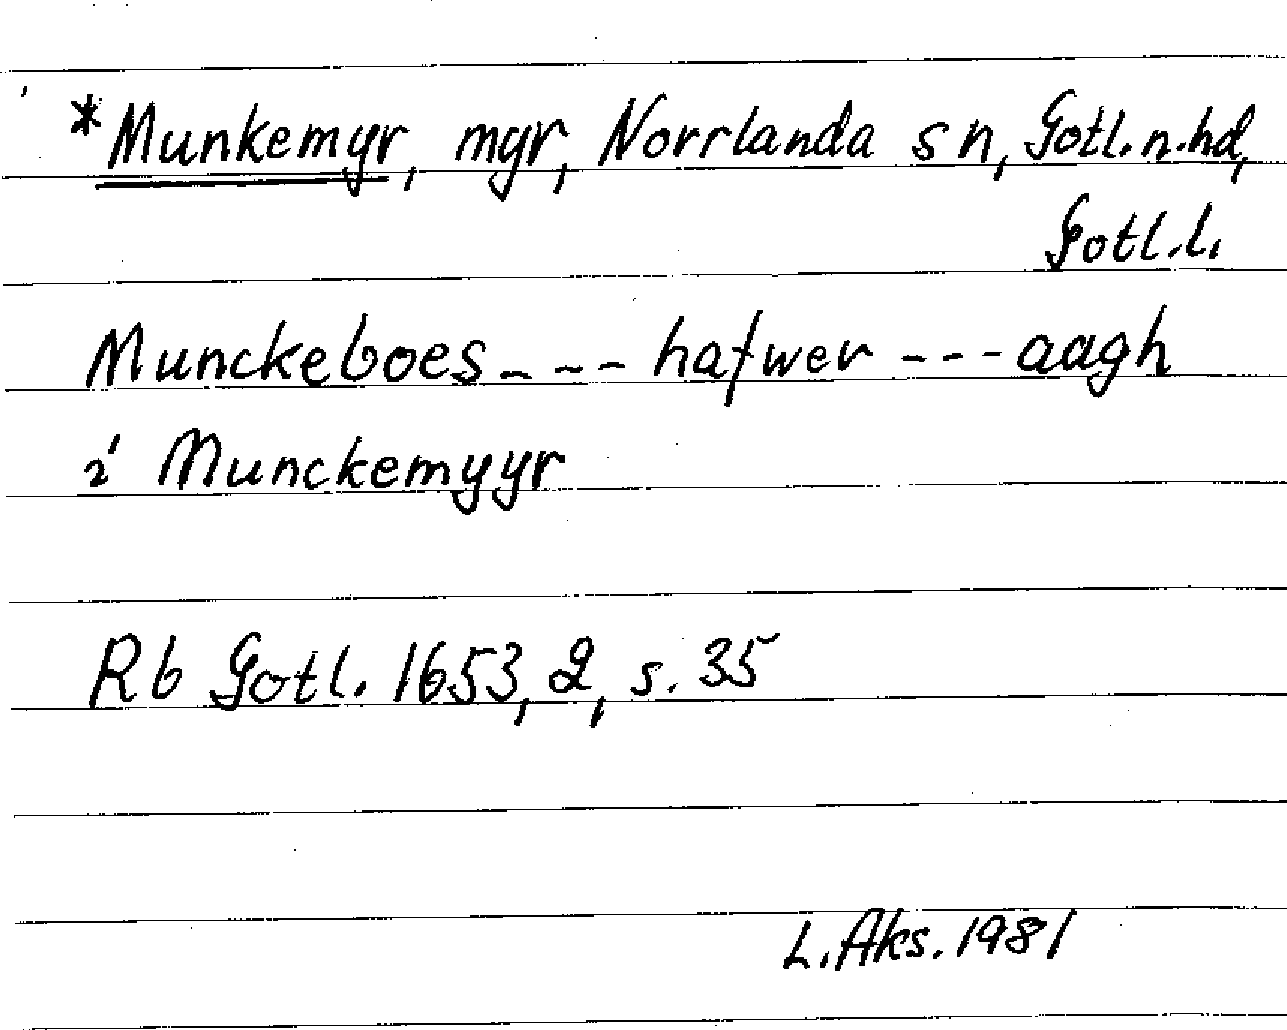 *Munkemyr, myr, Norrlanda sn, Gotl.n.hd,
Gotl.l.
Munckeboes --- hafwer --- aagh
i Munckemyyr
Rb Gotl. 1653, 2, s. 35
L. Aks. 1981